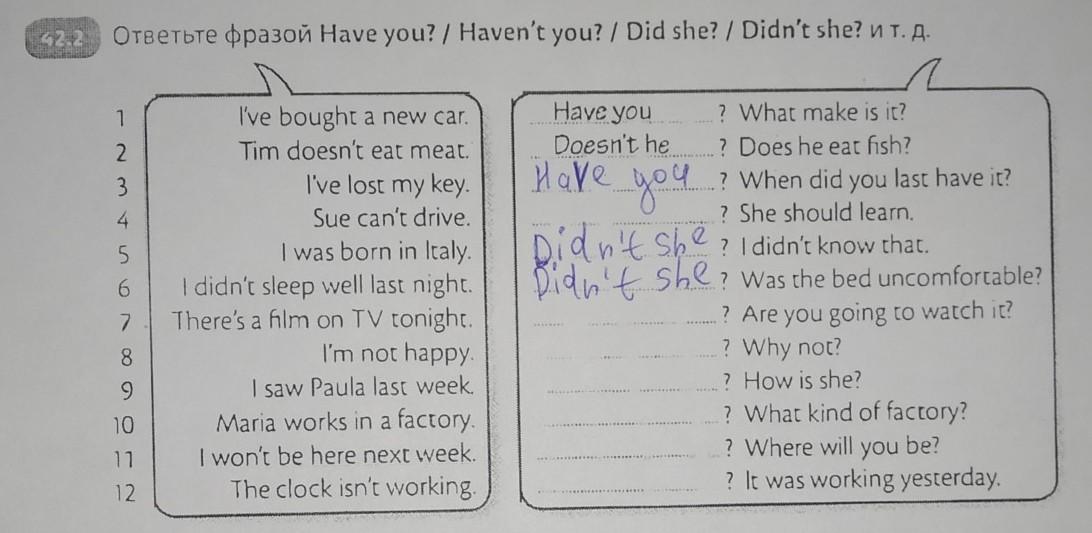 42.2 Ответьте фразой Have you? / Haven't you? / Did she? / Didn't she? и т. д.
1 I've bought a new car. Have you ? What make is it?
2 Tim doesn't eat meat. Doesn't he ? Does he eat fish?
3 I've lost my key. Have you ? When did you last have it?
4 Sue can't drive. ? She should learn.
5 I was born in Italy. Didn't she ? I didn't know that.
6 I didn't sleep well last night. Didn't she ? Was the bed uncomfortable?
7 There's a film on TV tonight. ? Are you going to watch it?
8 I'm not happy. ? Why not?
9 I saw Paula last week. ? How is she?
10 Maria works in a factory. ? What kind of factory?
11 I won't be here next week. ? Where will you be?
12 The clock isn't working. ? It was working yesterday.